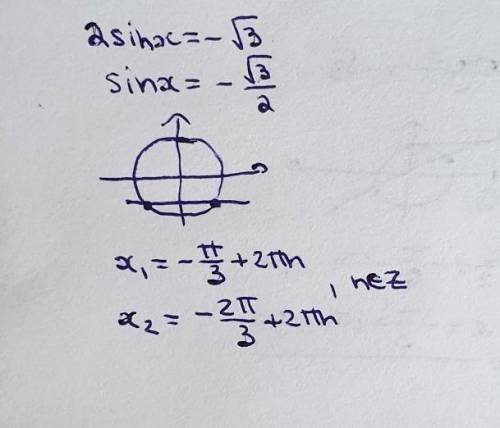 2sinx = -√3
sinx = -√3/2
x₁ = -π/3 + 2πn
x₂ = -2π/3 + 2πn , n∈Z